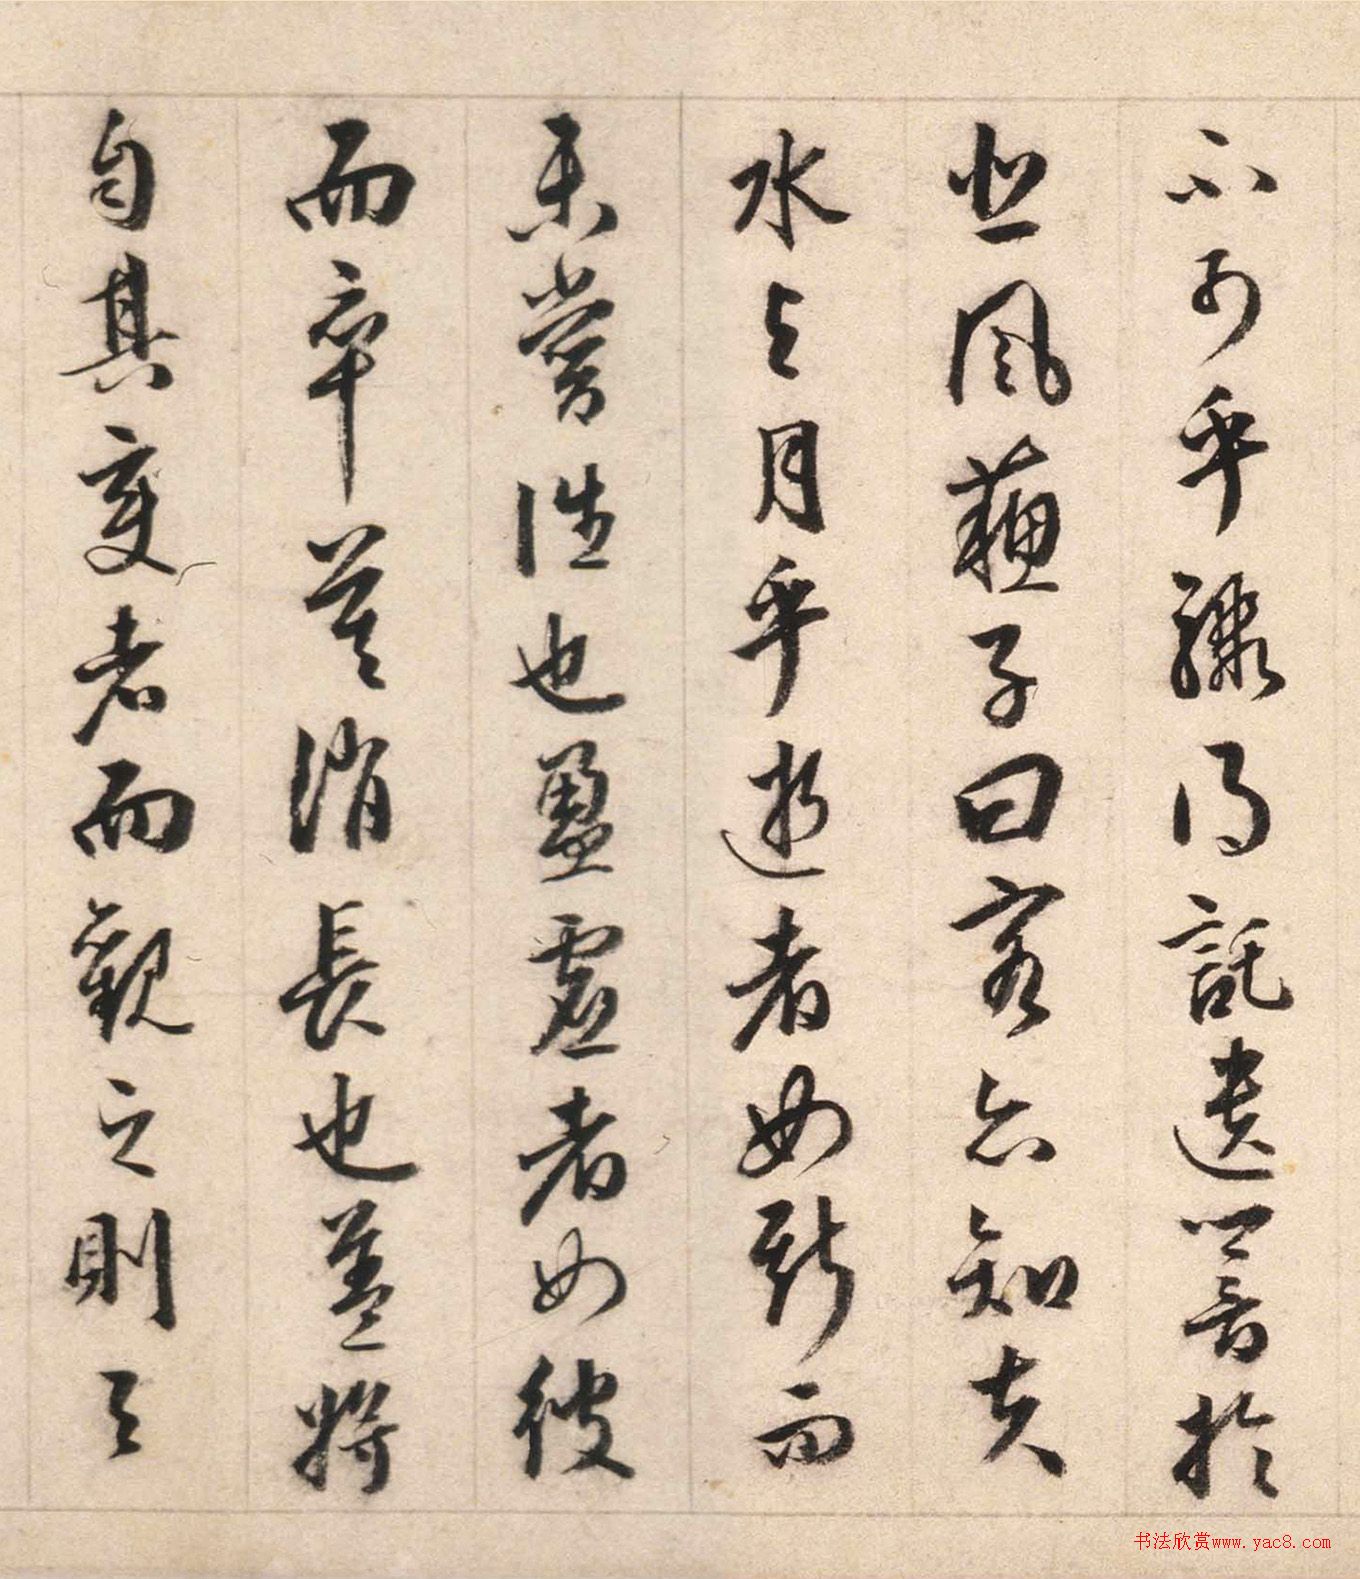 不可乎驟得託遺響於
悲風蘇子曰客亦知夫
水與月乎逝者如斯而
未嘗往也盈虛者如彼
而卒莫消長也蓋將
自其變者而觀之則天
书法欣赏www.yac8.com